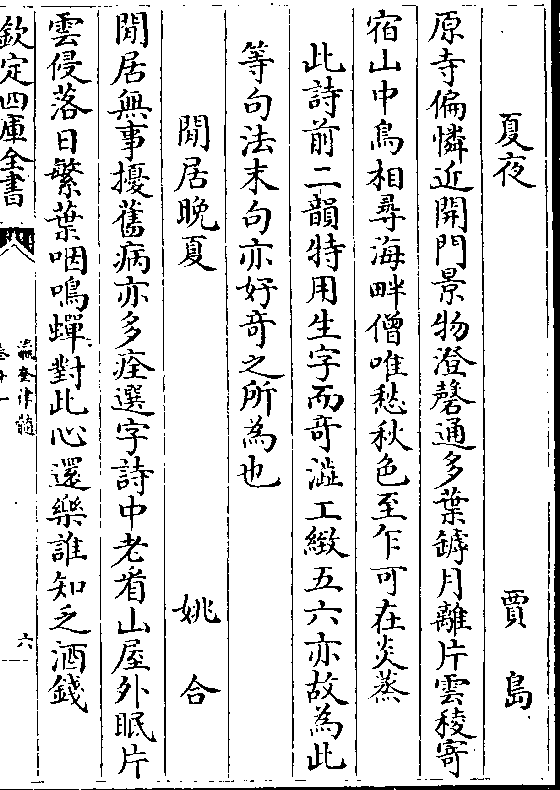 夏夜 賈島
原寺偏憐近開門景物澄磬通多葉罅月離片雲稜寄
宿山中鳥相尋海畔僧唯愁秋色至乍可在炎蒸
此詩前二韻特用生字而竒澁工緻五六亦故為此
等句法末句亦好竒之所為也
閒居晚夏 姚合
閒居無事擾舊病亦多痊選字詩中老看山屋外眠片
雲侵落日繁葉咽鳴蟬對此心還樂誰知乏酒錢
欽定四庫全書
瀛奎律髓
六